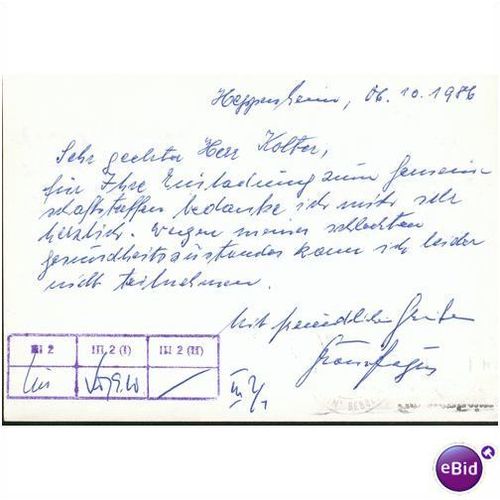 Heppenheim, 06.10.1986
Sehr geehrter Herr Kolter,
für Ihre Einladung zum Gemein-
schaftstreffen bedanke ich mich sehr
herzlich. Wegen meines schlechten
Gesundheitszustandes kann ich leider
nicht teilnehmen.
Mit freundlichen Grüßen
III 2 III 2 (I) III 2 (II)
eBid